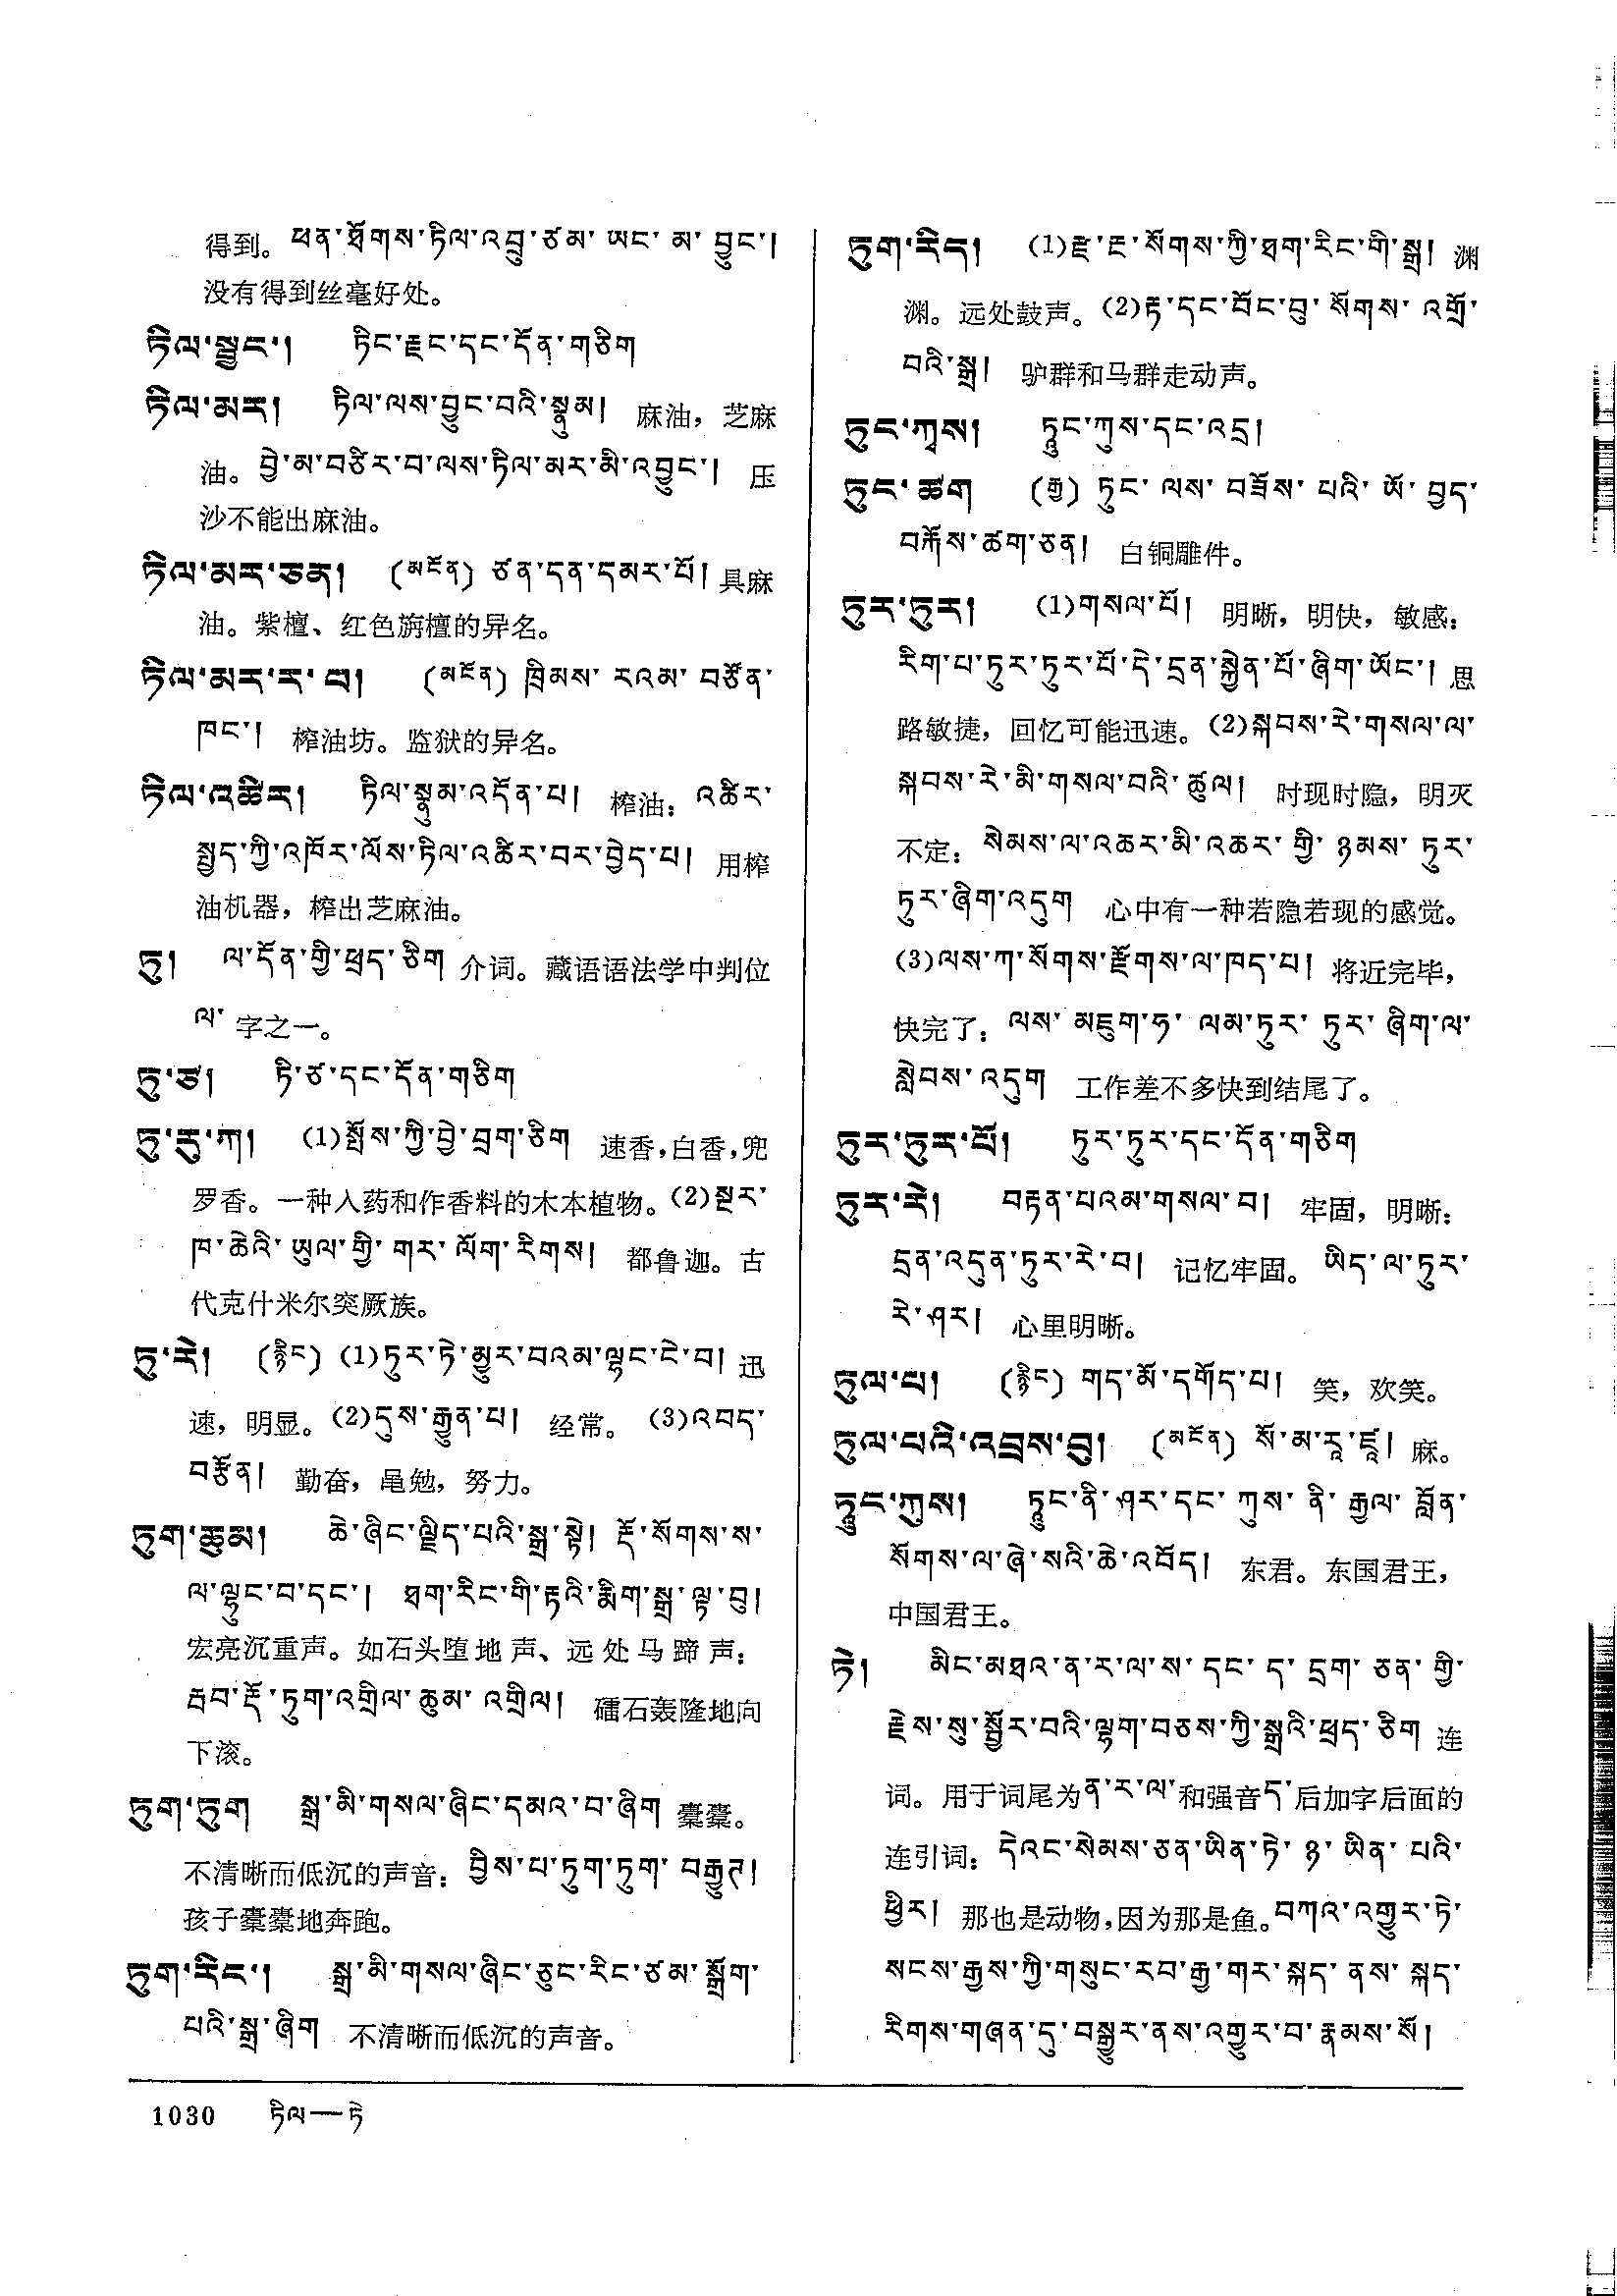 得到。 ཕན་ཐོགས་ཏིལ་འབྲུ་ཙམ་ ཡང་ མ་ བྱུང་།
没有得到丝毫好处。
ཏིལ་སྦྱང་། ཏིང་རྫང་དང་དོན་གཅིག
ཏིལ་མར། ཏིལ་ལས་བྱུང་བའི་སྣུམ། 麻油，芝麻
油。བྱེ་མ་བཙིར་བ་ལས་ཏིལ་མར་མི་འབྱུང་། 压
沙不能出麻油。
ཏིལ་མར་ཅན། (མངོན) ཙན་དན་དམར་པོ། 具麻
油。紫檀、红色旃檀的异名。
ཏིལ་མར་ར་བ། (མངོན) ཁྲིམས་ རའམ་ བཙོན་
ཁང་། 榨油坊。监狱的异名。
ཏིལ་འཚིར། ཏིལ་སྣུམ་འདོན་པ། 榨油： འཚིར་
སྤྱད་ཀྱི་འཁོར་ལོས་ཏིལ་འཚིར་བར་བྱེད་པ། 用榨
油机器，榨出芝麻油。
ཏུ། ལ་དོན་གྱི་ཕྲད་ཅིག 介词。藏语语法学中判位
ལ་ 字之一。
ཏུ་ཙ། ཏི་ཙ་དང་དོན་གཅིག
ཏུ་རུ་ཀ། (1)སྤོས་ཀྱི་བྱེ་བྲག་ཅིག 速香，白香，兜
罗香。一种入药和作香料的木本植物。(2)སྔར་
ཁ་ཆེའི་ ཡུལ་གྱི་ གར་ ལོག་རིགས། 都鲁迦。古
代克什米尔突厥族。
ཏུ་རེ། (རྙིང) (1)ཏུར་ཏེ་མྱུར་བའམ་ལྷང་ངེ་བ། 迅
速，明显。(2)དུས་རྒྱུན་པ། 经常。 (3)འབད་
བརྩོན། 勤奋，黾勉，努力。
ཏུག་ཆུམ། ཆེ་ཞིང་ལྗིད་པའི་སྒྲ་སྟེ། རྡོ་སོགས་ས་
ལ་ལྷུང་བ་དང་། ཐག་རིང་གི་རྟའི་རྨིག་སྒྲ་ལྟ་བུ།
宏亮沉重声。如石头堕地声、远处马蹄声：
རྦབ་རྡོ་ཏུག་འགྲིལ་ཆུམ་ འགྲིལ། 礌石轰隆地向
下滚。
ཏུག་ཏུག སྒྲ་མི་གསལ་ཞིང་དམའ་བ་ཞིག 橐橐。
不清晰而低沉的声音：བྱིས་པ་ཏུག་ཏུག་ བརྒྱུཊ།
孩子橐橐地奔跑。
ཏུག་རིང་། སྒྲ་མི་གསལ་ཞིང་ཅུང་རིང་ཙམ་སྒྲོག་
པའི་སྒྲ་ཞིག 不清晰而低沉的声音。
ཏུག་རིད། (1)རྫ་རྔ་སོགས་ཀྱི་ཐག་རིང་གི་སྒྲ། 渊
渊。远处鼓声。(2)རྟ་དང་བོང་བུ་ སོགས་ འགྲོ་
བའི་སྒྲ། 驴群和马群走动声。
ཏུང་ཀྭས། ཏཱུང་ཀུས་དང་འདྲ།
ཏུང་ཚག (རྒྱ) ཏུང་ ལས་ བཟོས་ པའི་ ཡོ་ བྱད་
བརྐོས་ཚག་ཅན། 白铜雕件。
ཏུར་ཏུར། (1)གསལ་པོ། 明晰，明快，敏感：
རིག་པ་ཏུར་ཏུར་པོ་དེ་དྲན་སྐྱེན་པོ་ཞིག་ཡོང་། 思
路敏捷，回忆可能迅速。(2)སྐབས་རེ་གསལ་ལ་
སྐབས་རེ་མི་གསལ་བའི་ ཚུལ། 时现时隐，明灭
不定：སེམས་ལ་འཆར་མི་འཆར་ གྱི་ ཉམས་ ཏུར་
ཏུར་ཞིག་འདུག 心中有一种若隐若现的感觉。
(3)ལས་ཀ་སོགས་རྫོགས་ལ་ཁད་པ། 将近完毕，
快完了：ལས་ མཇུག་ད་ ལམ་ཏུར་ ཏུར་ ཞིག་ལ་
སླེབས་འདུག 工作差不多快到结尾了。
ཏུར་ཏུར་པོ། ཏུར་ཏུར་དང་དོན་གཅིག
ཏུར་རེ། བརྟན་པའམ་གསལ་བ། 牢固，明晰：
དྲན་འདུན་ཏུར་རེ་བ། 记忆牢固。 ཡིད་ལ་ཏུར་
རེ་ཤར། 心里明晰。
ཏུལ་པ། (རྙིང) གད་མོ་དགོད་པ། 笑，欢笑。
ཏུལ་པའི་འབྲས་བུ། (མངོན) སོ་མ་རཱ་ཛཱ། 麻。
ཏཱུང་ཀུས། ཏཱུང་ནི་ཤར་དང་ ཀུས་ ནི་ རྒྱལ་ བློན་
སོགས་ལ་ཞེ་སའི་ཆེ་འབོད། 东君。东国君王，
中国君王。
ཏེ། མིང་མཐའ་ན་ར་ལ་ས་ དང་ ད་ དྲག་ ཅན་ གྱི་
རྗེས་སུ་སྦྱོར་བའི་ལྷག་བཅས་ཀྱི་སྒྲའི་ཕྲད་ཅིག 连
词。用于词尾为ན་ར་ལ་和强音ད་后加字后面的
连引词：དེའང་སེམས་ཅན་ཡིན་ཏེ་ ཉ་ ཡིན་ པའི་
ཕྱིར། 那也是动物，因为那是鱼。བཀའ་འགྱུར་ཏེ་
སངས་རྒྱས་ཀྱི་གསུང་རབ་རྒྱ་གར་སྐད་ ནས་ སྐད་
རིགས་གཞན་དུ་བསྒྱུར་ནས་འགྱུར་བ་རྣམས་སོ།
1030 ཏིལ—ཏེ